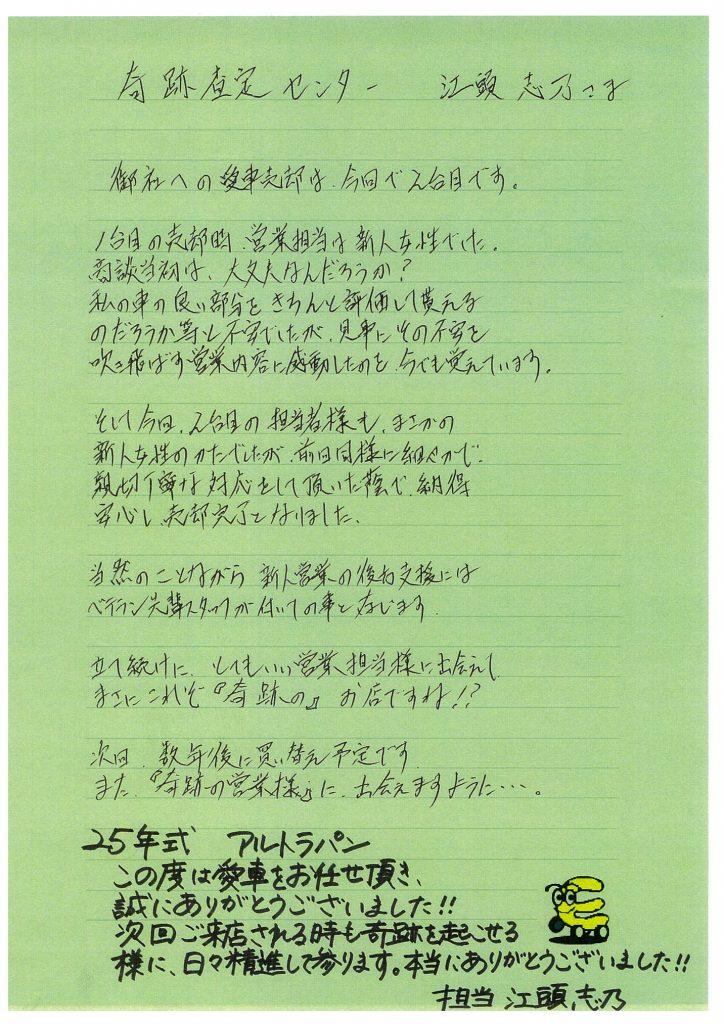 奇跡査定センター 江頭 志乃さま
御社への愛車売却は、今回で2台目です。
1台目の売却時、営業担当は新人女性でした。
商談当初は、大丈夫なんだろうか？
私の車の良い部分をきちんと評価して貰える
のだろうか等と不安でしたが、見事にその不安を
吹き飛ばす営業内容に感動したのを、今でも覚えています。
そして今回、2台目の担当者様も、まさかの
新人女性のかたでしたが、前回同様に細やかで、
親切丁寧な対応をして頂いた蔭で、納得
安心し、売却完了となりました、
当然のことながら 新人営業の後方支援には
ベテラン先輩スタッフが付いての事と存じます
立て続けに、とてもいい営業担当様に出会えて
まさにこれぞ『奇跡の』お店ですね!?
次回、数年後に買い替え予定です
また、『奇跡の営業様』に、出会えますように・・・。
25年式 アルトラパン
この度は愛車をお任せ頂き、
誠にありがとうございました!!
次回ご来店される時も奇跡を起こせる
様に、日々精進して参ります。本当にありがとうございました!!
担当 江頭 志乃